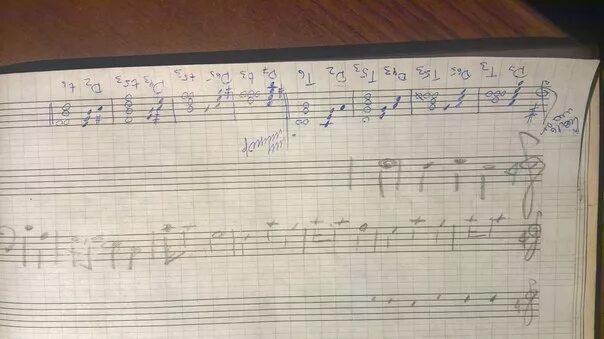 D7 T3 D65 T53 D43 T53 D2 T6 D7 t3 D65 t53 D43 t53 D2 t6